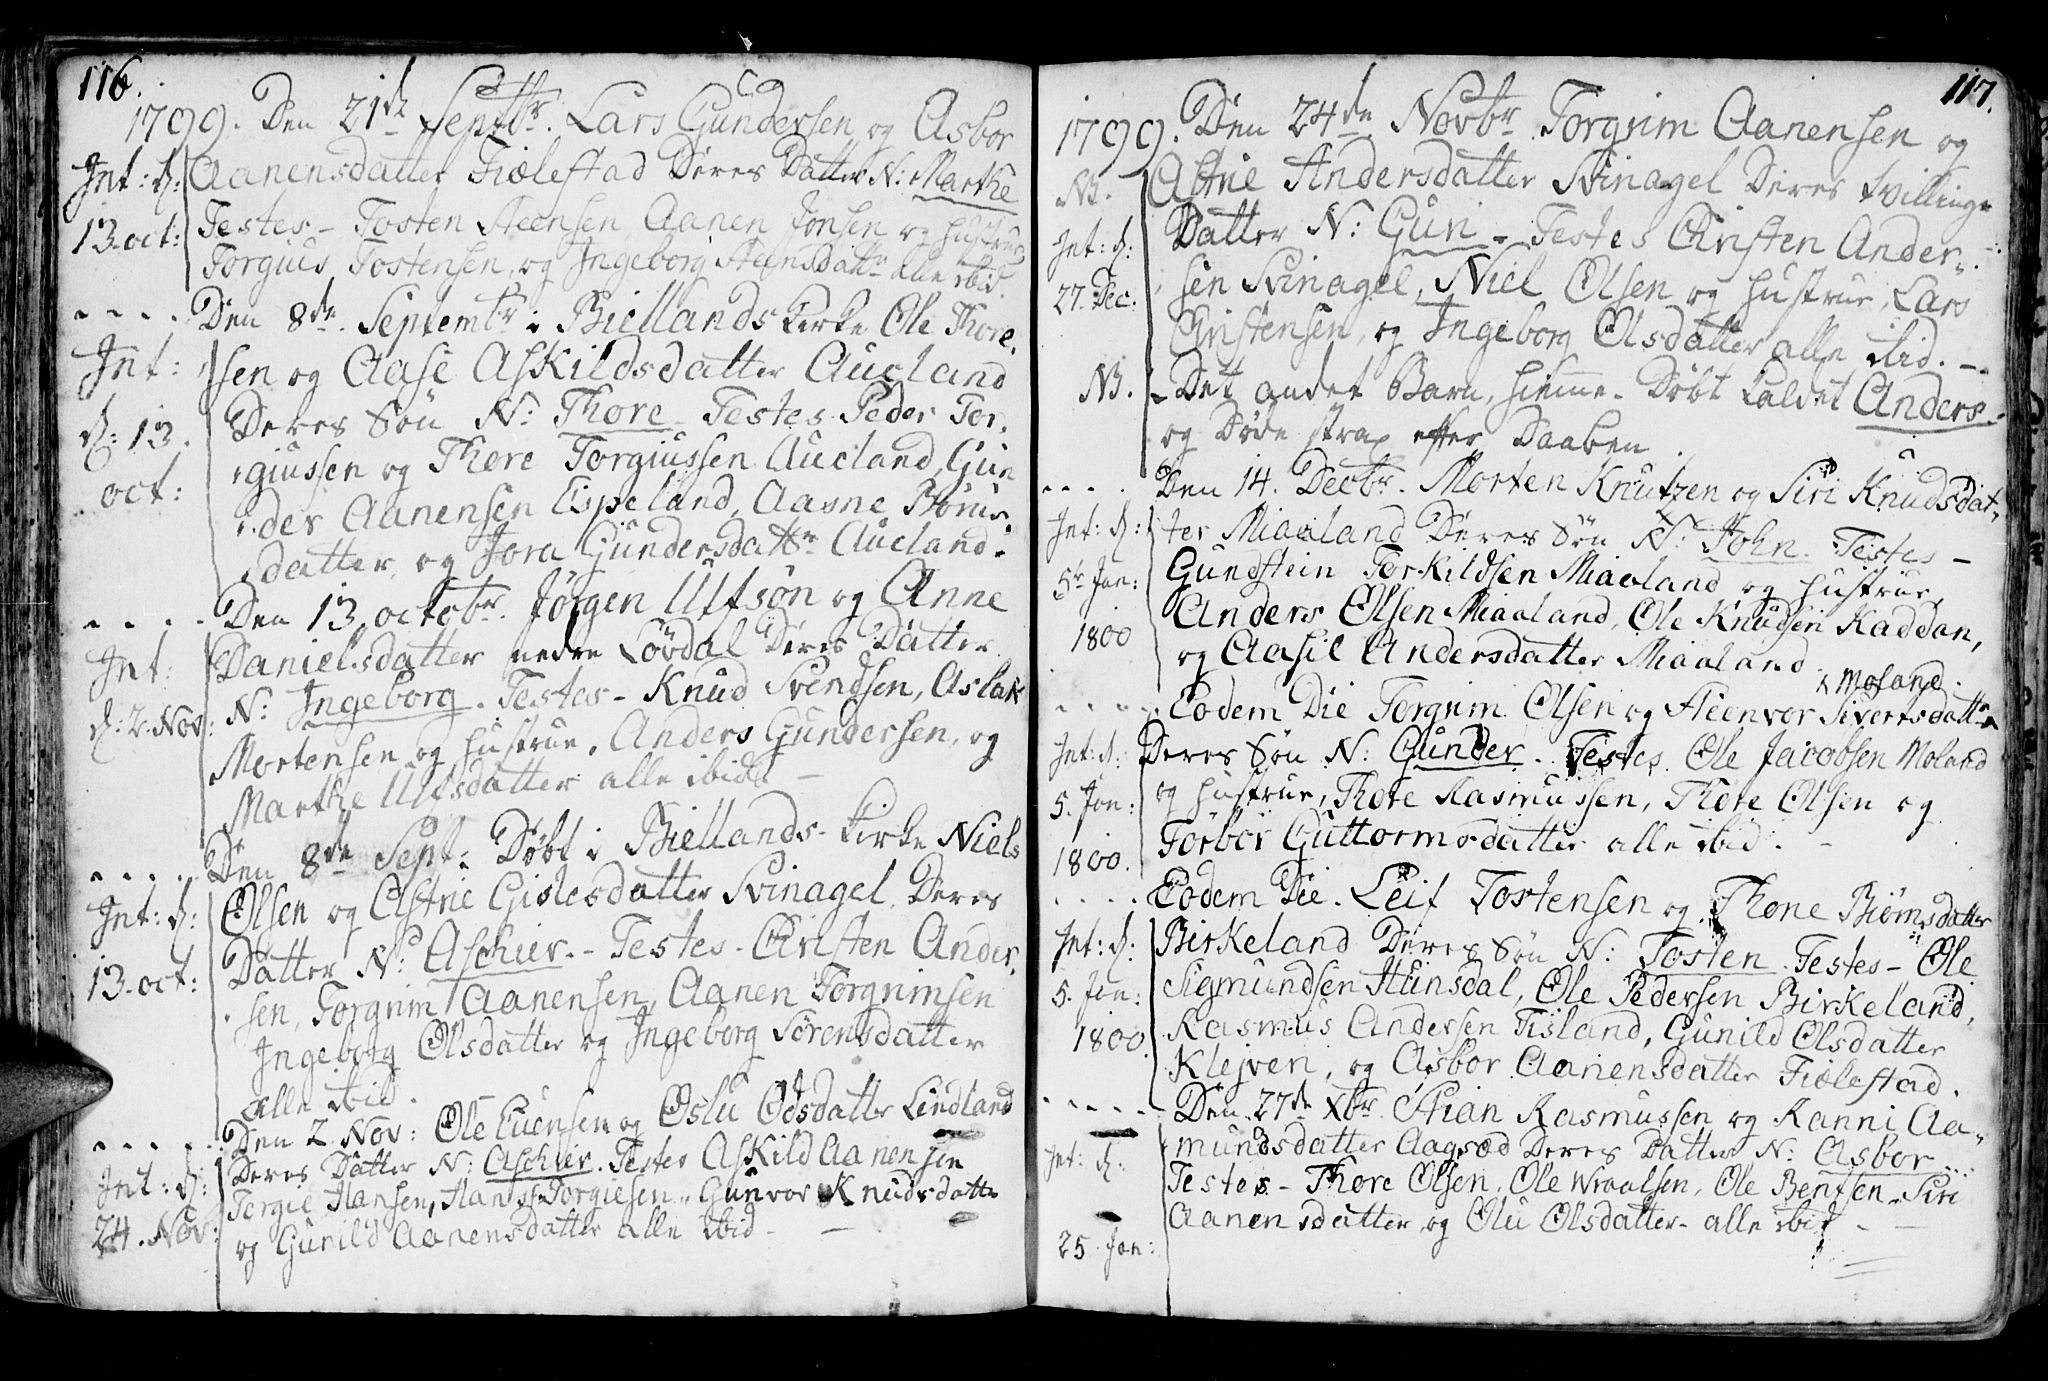 116.
1799. Den 21de Septbr. Lars Gundersen og Asbor
Int: d: Aanensdatter Fiælestad Deres Datter N: Marthe
13. oct: Testes - Tosten Steensen, Aanen Jonsen og Hustrue
Torgius Tostensen, og Ingeborg Steensdattr alle ibid.
Den 8de Septembr i Biellands Kirke Ole Thore-
Int: sen og Aase Askildsdatter Aucland
Deres Søn N: Thore - Testes Peder Tor-
d: 13. giussen og Thore Torgiussen Aucland, Gun
oct: der Aanensen Espeland, Aasne
datter, og Jora Gundersdattr Aucland.
Den 13. octobr. Jørgen Ulfsøn og Anne
Int: Danielsdatter nedre Løvdal Deres Datter
N: Ingeborg. Testes - Knud Svendsen, Aslak
d: 2. Nov: Mortensen og Hustrue, Anders Gundersen, og
Marthe Ulfsdatter alle ibid. -
Den 8de Sept: Døbt i Biellands Kirke Niels
Int: d: Olsen og Astrie Gislesdatter Svinagel Deres
Datter N: Aschier. - Testes - Christen Ander-
13. oct: sen, Torgrim Aanensen, Aanen Torgrimsen
Ingeborg Olsdatter og Ingeborg Sørensdatter
alle ibid.
Den 2 Nov: Ole Euensen og Oslu Odsdatter Lindland
Int: d: Deres Datter N: Aschier. Testes Askild Aanensen
Torgie Hansen, Hans Torgiesen, Gunvor Knudsdatter
24. Nov: og Gunild Aanensdatter alle ibid -
117.
1799. Den 24de Novbr Torgrim Aanensen og
NB. Astrie Andersdatter Svinagel Deres tvillinge
Int: d: Datter N: Guri. Testes Christen Ander-
27. Dec: sen Svinagel, Niel Olsen og Hustrue, Lars
Christensen, og Ingeborg Olsdatter alle ibid. -
NB. Det andet Barn, hiemme-Døbt kaldet Anders.
og Døde strax efter Daaben.
Den 14. Decbr. Morten Knutzen og Siri Knudsdat-
Int: d: ter Miaaland Deres Søn N: John. Testes -
5te Jan: Gundstein Torkildsen Miaaland og Hustrue,
1800 Anders Olsen Miaaland, Ole Knudsen Kaddan,
og Aasil Andersdatter Miaaland.
x Moland.
Eodem Die Torgrim Olsen og Steenvor Sivertsdattr x
Int: d: Deres Søn N: Gunder. Testes Ole Jacobsen Moland
5. Jan: og Hustrue, Thore Rasmussen, Thore Olsen og
1800. Torbor Guttormsdatter alle ibid. -
Eodem Die. Leif Tostensen og Thone Biørnsdatter
Int: d: Birkeland Deres Søn N: Tosten. Testes - Ole
5. Jan: Sigmundsen Hunsdal, Ole Pedersen Birkeland,
1800. Rasmus Andersen Tisland, Gunild Olsdatter
Klejven, og Asbor Aanensdatter Fiælestad.
Den 27de Xbr. Stian Rasmussen og Ranni Aa-
Int: d: mundsdatter Aagsæd Deres Datter N: Asbor
Testes - Thore Olsen, Ole Wraalsen, Ole Bentsen, Siri
Aanensdatter og Olu Olsdatter alle ibid -
25 Jan: